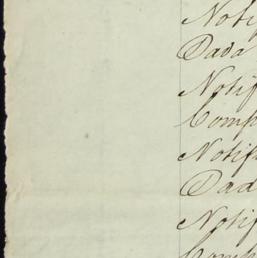 Notif
Dada
Notif
Comp
Notif
Dad
Notif
Comp